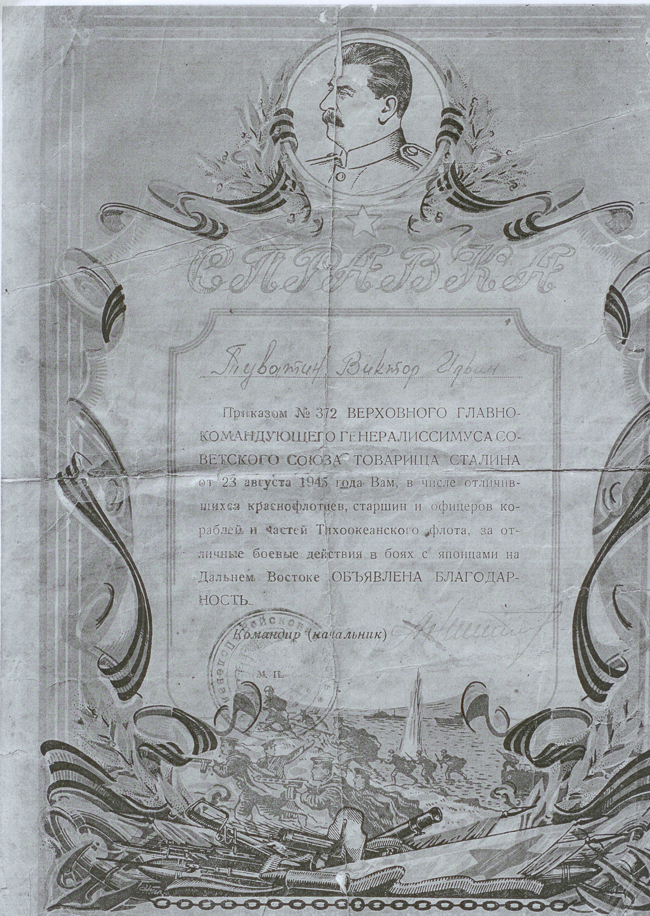 СПРАВКА
Тувати Виктор
Приказом № 372 ВЕРХОВНОГО ГЛАВНО-
КОМАНДУЮЩЕГО ГЕНЕРАЛИССИМУСА СО-
ВЕТСКОГО СОЮЗА ТОВАРИЩА СТАЛИНА
от 23 августа 1945 года Вам, в числе отличив-
шихся краснофлотцев, старшин и офицеров ко-
раблей и частей Тихоокеанского флота, за от-
личные боевые действия в боях с японцами на
Дальнем Востоке ОБЪЯВЛЕНА БЛАГОДАР-
НОСТЬ.
Командир (начальник)
М. П.